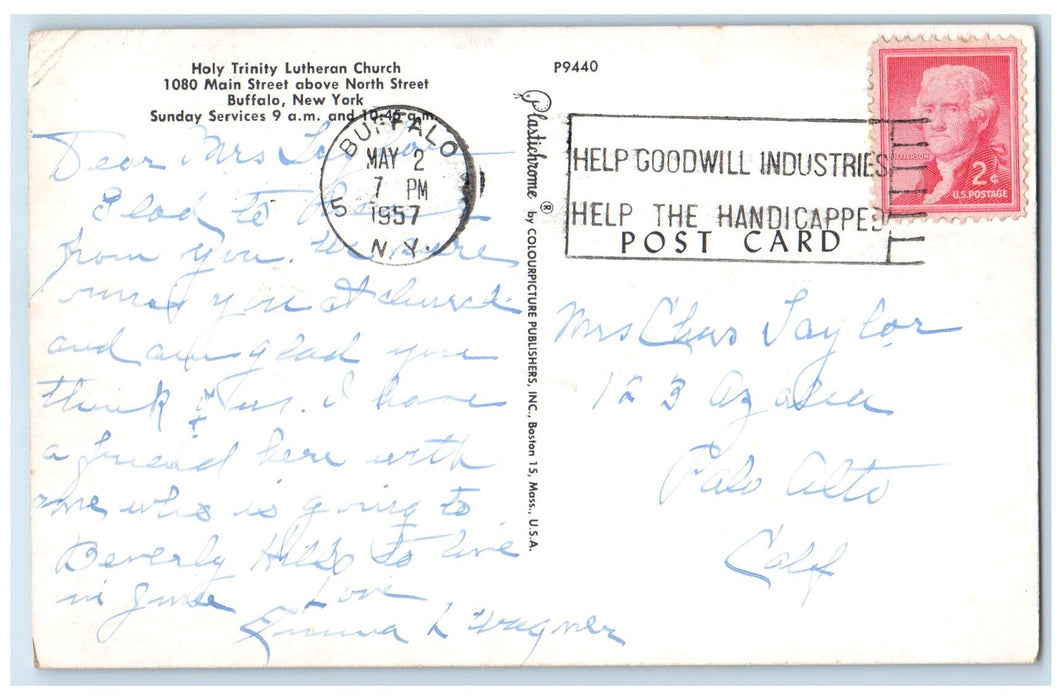 Holy Trinity Lutheran Church
1080 Main Street above North Street
Buffalo, New York
Sunday Services 9 a.m. and 10:45 a.m.
Dear Mrs Taylor
Glad to hear
from you. We sure
miss you at church
and am glad you
think of us. I have
a friend here with
me who is going to
Beverly Hills to live
in June Love
Emma L Wagner
BUFFALO
MAY 2
7 PM
1957
N.Y.
5
Plastichrome ® by COLOURPICTURE PUBLISHERS, INC., Boston 15, Mass., U.S.A.
P9440
HELP GOODWILL INDUSTRIES
HELP THE HANDICAPPED
POST CARD
JEFFERSON
2¢
U.S. POSTAGE
Mrs Chas Taylor
123 Azalea
Palo Alto
Calif